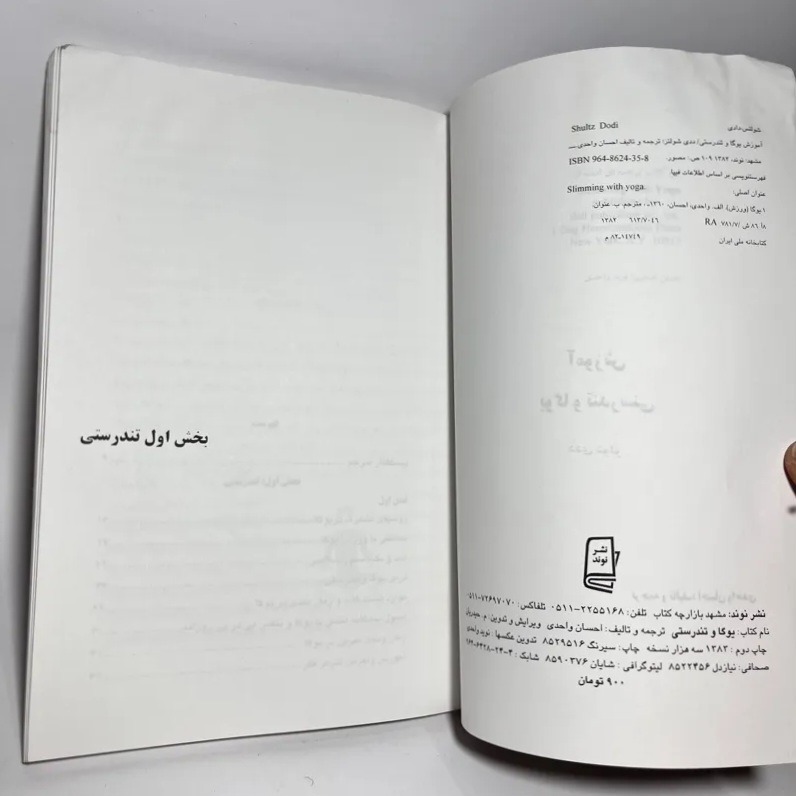 شولتس،دادی
Shultz Dodi
آموزش یوگا و تندرستی/ ددی شولتز؛ ترجمه و تالیف احسان واحدی ــ
مشهد: نوند، ۱۳۸۲ ۱۰۹ ص: مصور. ISBN 964-8624-35-8
فهرستنویسی بر اساس اطلاعات فیپا
عنوان اصلی: Slimming with yoga.
۱.یوگا (ورزش). الف. واحدی، احسان، ۱۳۶۰-، مترجم. ب. عنوان.
۸آ ۸۶ ش /۷۸۱/۷ RA ۶۱۳/۷۰۴۶ ۱۳۸۲
کتابخانه ملی ایران ۸۲-۱۴۷۴۹ م
نشر نوند
نشر نوند: مشهد بازارچه کتاب تلفن: ۲۲۵۵۱۶۸-۰۵۱۱ تلفاکس: ۷۲۶۹۷۰۷۰-۰۵۱۱
نام کتاب: یوگا و تندرستی ترجمه و تالیف: احسان واحدی ویرایش و تدوین: م. حیدرپول
چاپ دوم : ۱۳۸۳ سه هزار نسخه چاپ: سیرنگ ۸۵۲۹۵۱۶ تدوین عکسها: نوید واحدی
صحافی: نیازدل ۸۵۲۲۴۵۶ لیتوگرافی : شایان ۸۵۹۰۳۷۶ شابک :
۹۰۰ تومان
بخش اول تندرستی